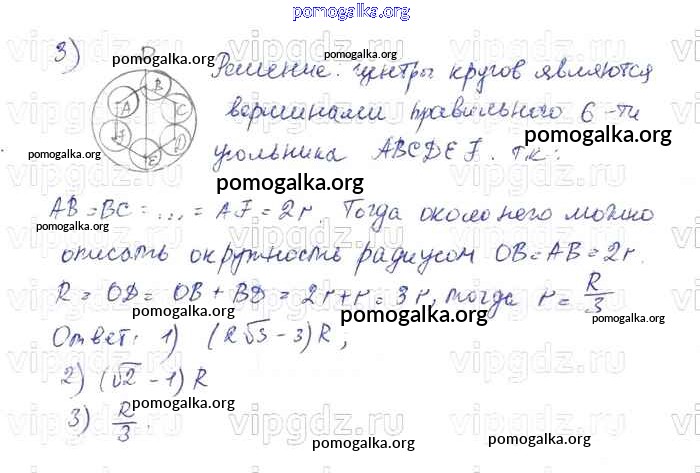 pomogalka.org
3)
Решение: центры кругов являются
вершинами правильного 6-ти
угольника ABCDEF. т.к:
AB=BC=...=AF=2r. Тогда около него можно
описать окружность радиусом OB=AB=2r.
R = OD= OB + BD = 2r+r=3r, тогда r = R/3
Ответ: 1) (2√3 - 3)R,
2) (√2 - 1) R
3) R/3.
D
B
A
C
F
D
E
pomogalka.org
pomogalka.org
pomogalka.org
pomogalka.org
pomogalka.org
pomogalka.org
pomogalka.org
pomogalka.org
pomogalka.org
pomogalka.org
pomogalka.org
pomogalka.org
vipgdz.ru
vipgdz.ru
vipgdz.ru